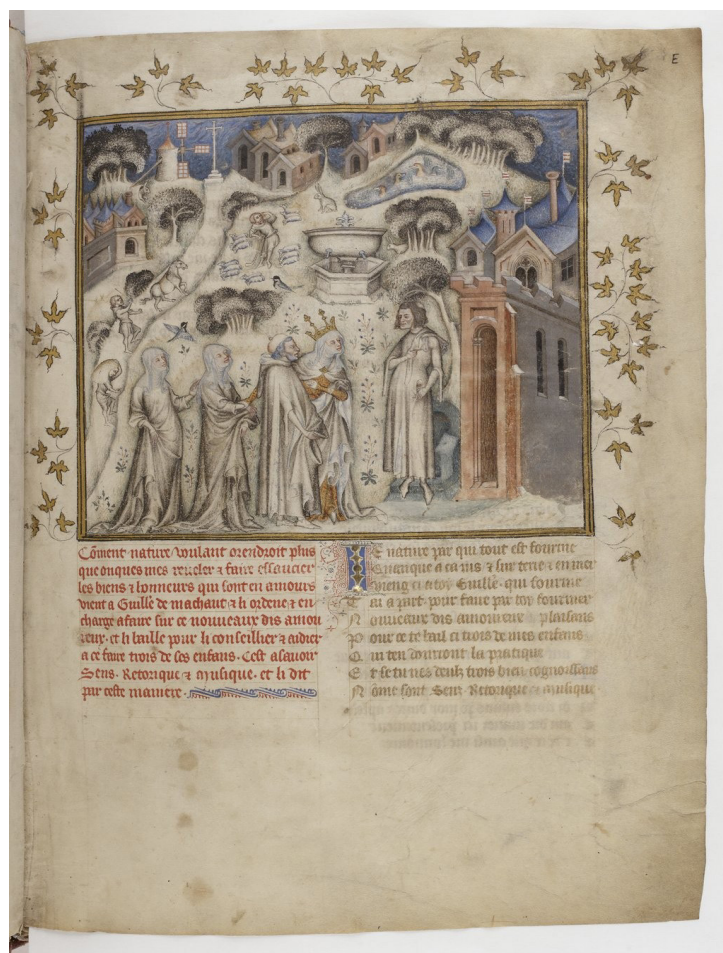 E
Coment nature voulant orendroit plus
que onques mes reveler & faire essaucier
les biens & honneurs qui sont en amours
vient a Guille de machaut & li ordene & en
charge a faire sur ce nouviaux dis amou
reux. et li baille pour li conseillier & aidier
a ce faire trois de ses enfans. Cest asavoir
Sens. Retorique & musique. et li dit
par ceste maniere.
Je nature par qui tout est fourme
Quanque a ca ius & sur terre & en mer
Vieng ci a toy Guille. qui fourme
Tai a part. pour faire par toy fourmer
Nouviaus dis amoureus plaisans
Pour ce te bail ci trois de mes enfans
Qui ten donront la pratique
Et se tu nes deulz trois bien cognoissans
Nome sont Sens Retorique & musique